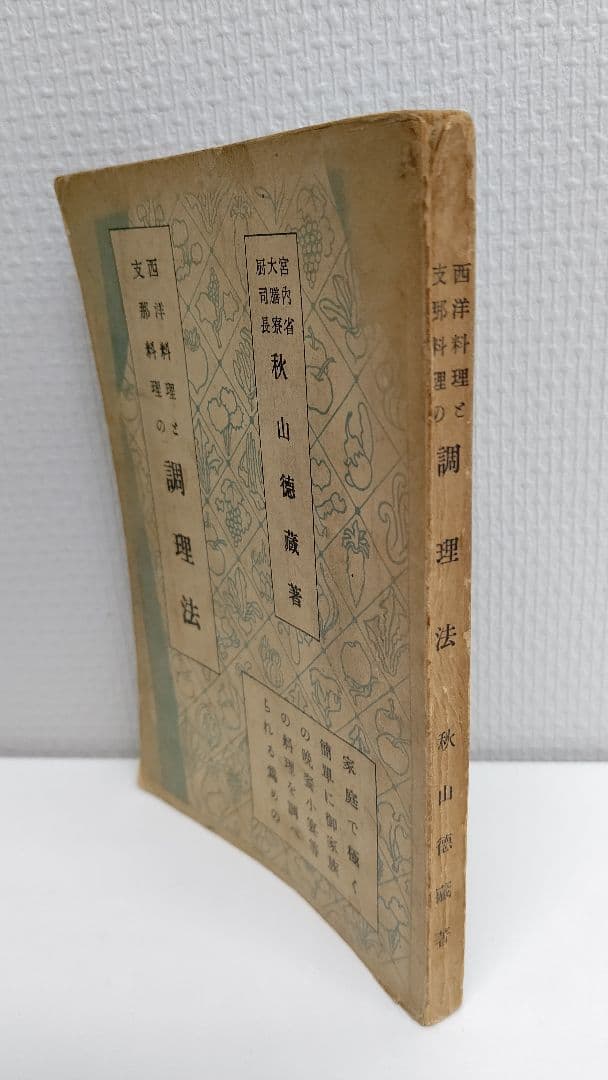 宮内省
大膳寮
厨司長
秋山徳蔵著
西洋料理と
支那料理の
調理法
家庭で極く
簡単に御家族
の晩餐小宴等
の料理を調べ
られる為めの
西洋料理と
支那料理の
調理法
秋山徳蔵著